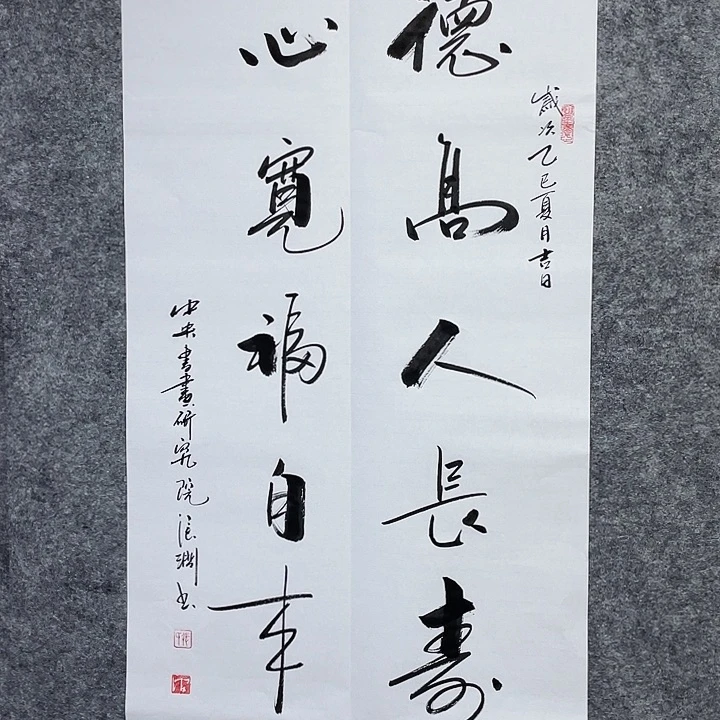 歲次乙巳夏月吉日
德高人長壽
心寬福自来
中央書畫研究院